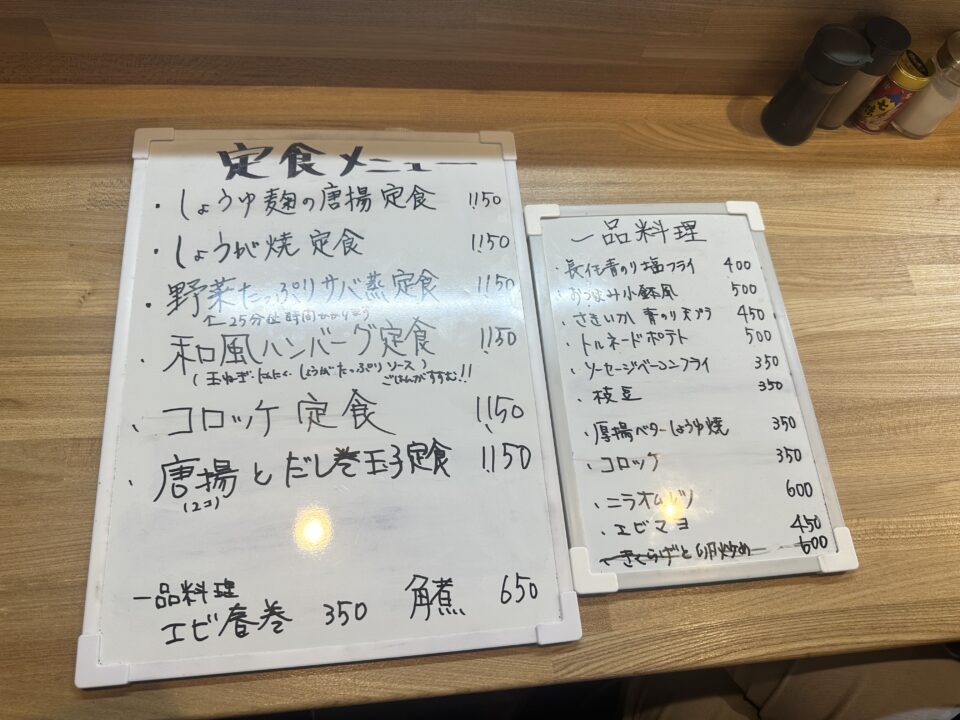 定食メニュー
・しょうゆ麹の唐揚定食 1,150
・しょうが焼定食 1,150
・野菜たっぷりサバ蒸定食 1,150
↑25分位時間かかります
・和風ハンバーグ定食 1,150
(玉ねぎ・にんにく・しょうがたっぷりソース)
ごはんがすすむ!!
・コロッケ定食 1,150
・唐揚とだし巻玉子定食 1,150
(2コ)
一品料理
エビ春巻 350 角煮 650
一品料理
・長任青のり塩フライ 400
・おつまみ小鉢風 500
・さきいか青のり天プラ 450
・トルネードポテト 500
・ソーセージベーコンフライ 350
・枝豆 350
・厚揚バターしょうゆ焼 350
・コロッケ 350
・ニラオムレツ 600
・エビマヨ 450
・きくらげと卵炒め 600